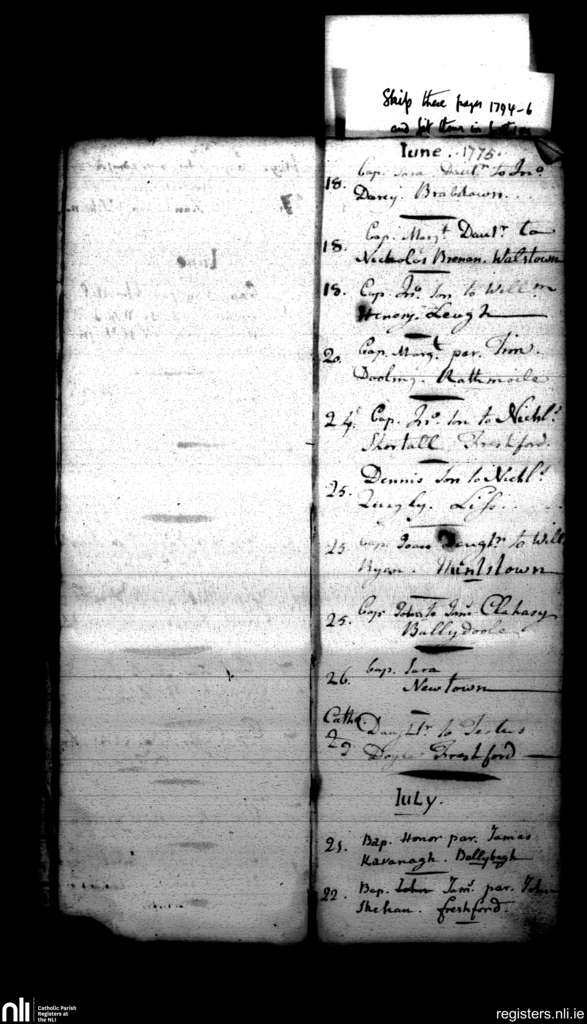 Skip these pages 1794-6
and put them in
June. 1775.
18. Bap. Sara Daut.r to Jno.
Darcy Brabstown.
18. Bap. Marg.t Daut.r to
Nicholas Brenan. Walstown
18. Bap. Jno. Son to Will.m
Henesy. Leugh
20. Bap. Marg.t par. Tim.
Dooling. Rathmoile
24. Bap. Jno. Son to Nichl.s
Shortall Freshford.
25. Dennis Son to Nichl.s
Quigly. Liss.
25. Bap. Joan Daught.r to Will
Ryan. Huntstown
25. Bap. to Jam.s Clahasy
Ballydoole
26. Bap. Sara
Newtown
Cath.
29 Daught.r to
Doyle Freshford
July.
21. Bap. Honor par. James
Kavanagh. Ballybegh
22. Bap. John Jam.s par. John
Shehan. freshford.
June
nli
Catholic Parish
Registers at
the NLI
registers.nli.ie